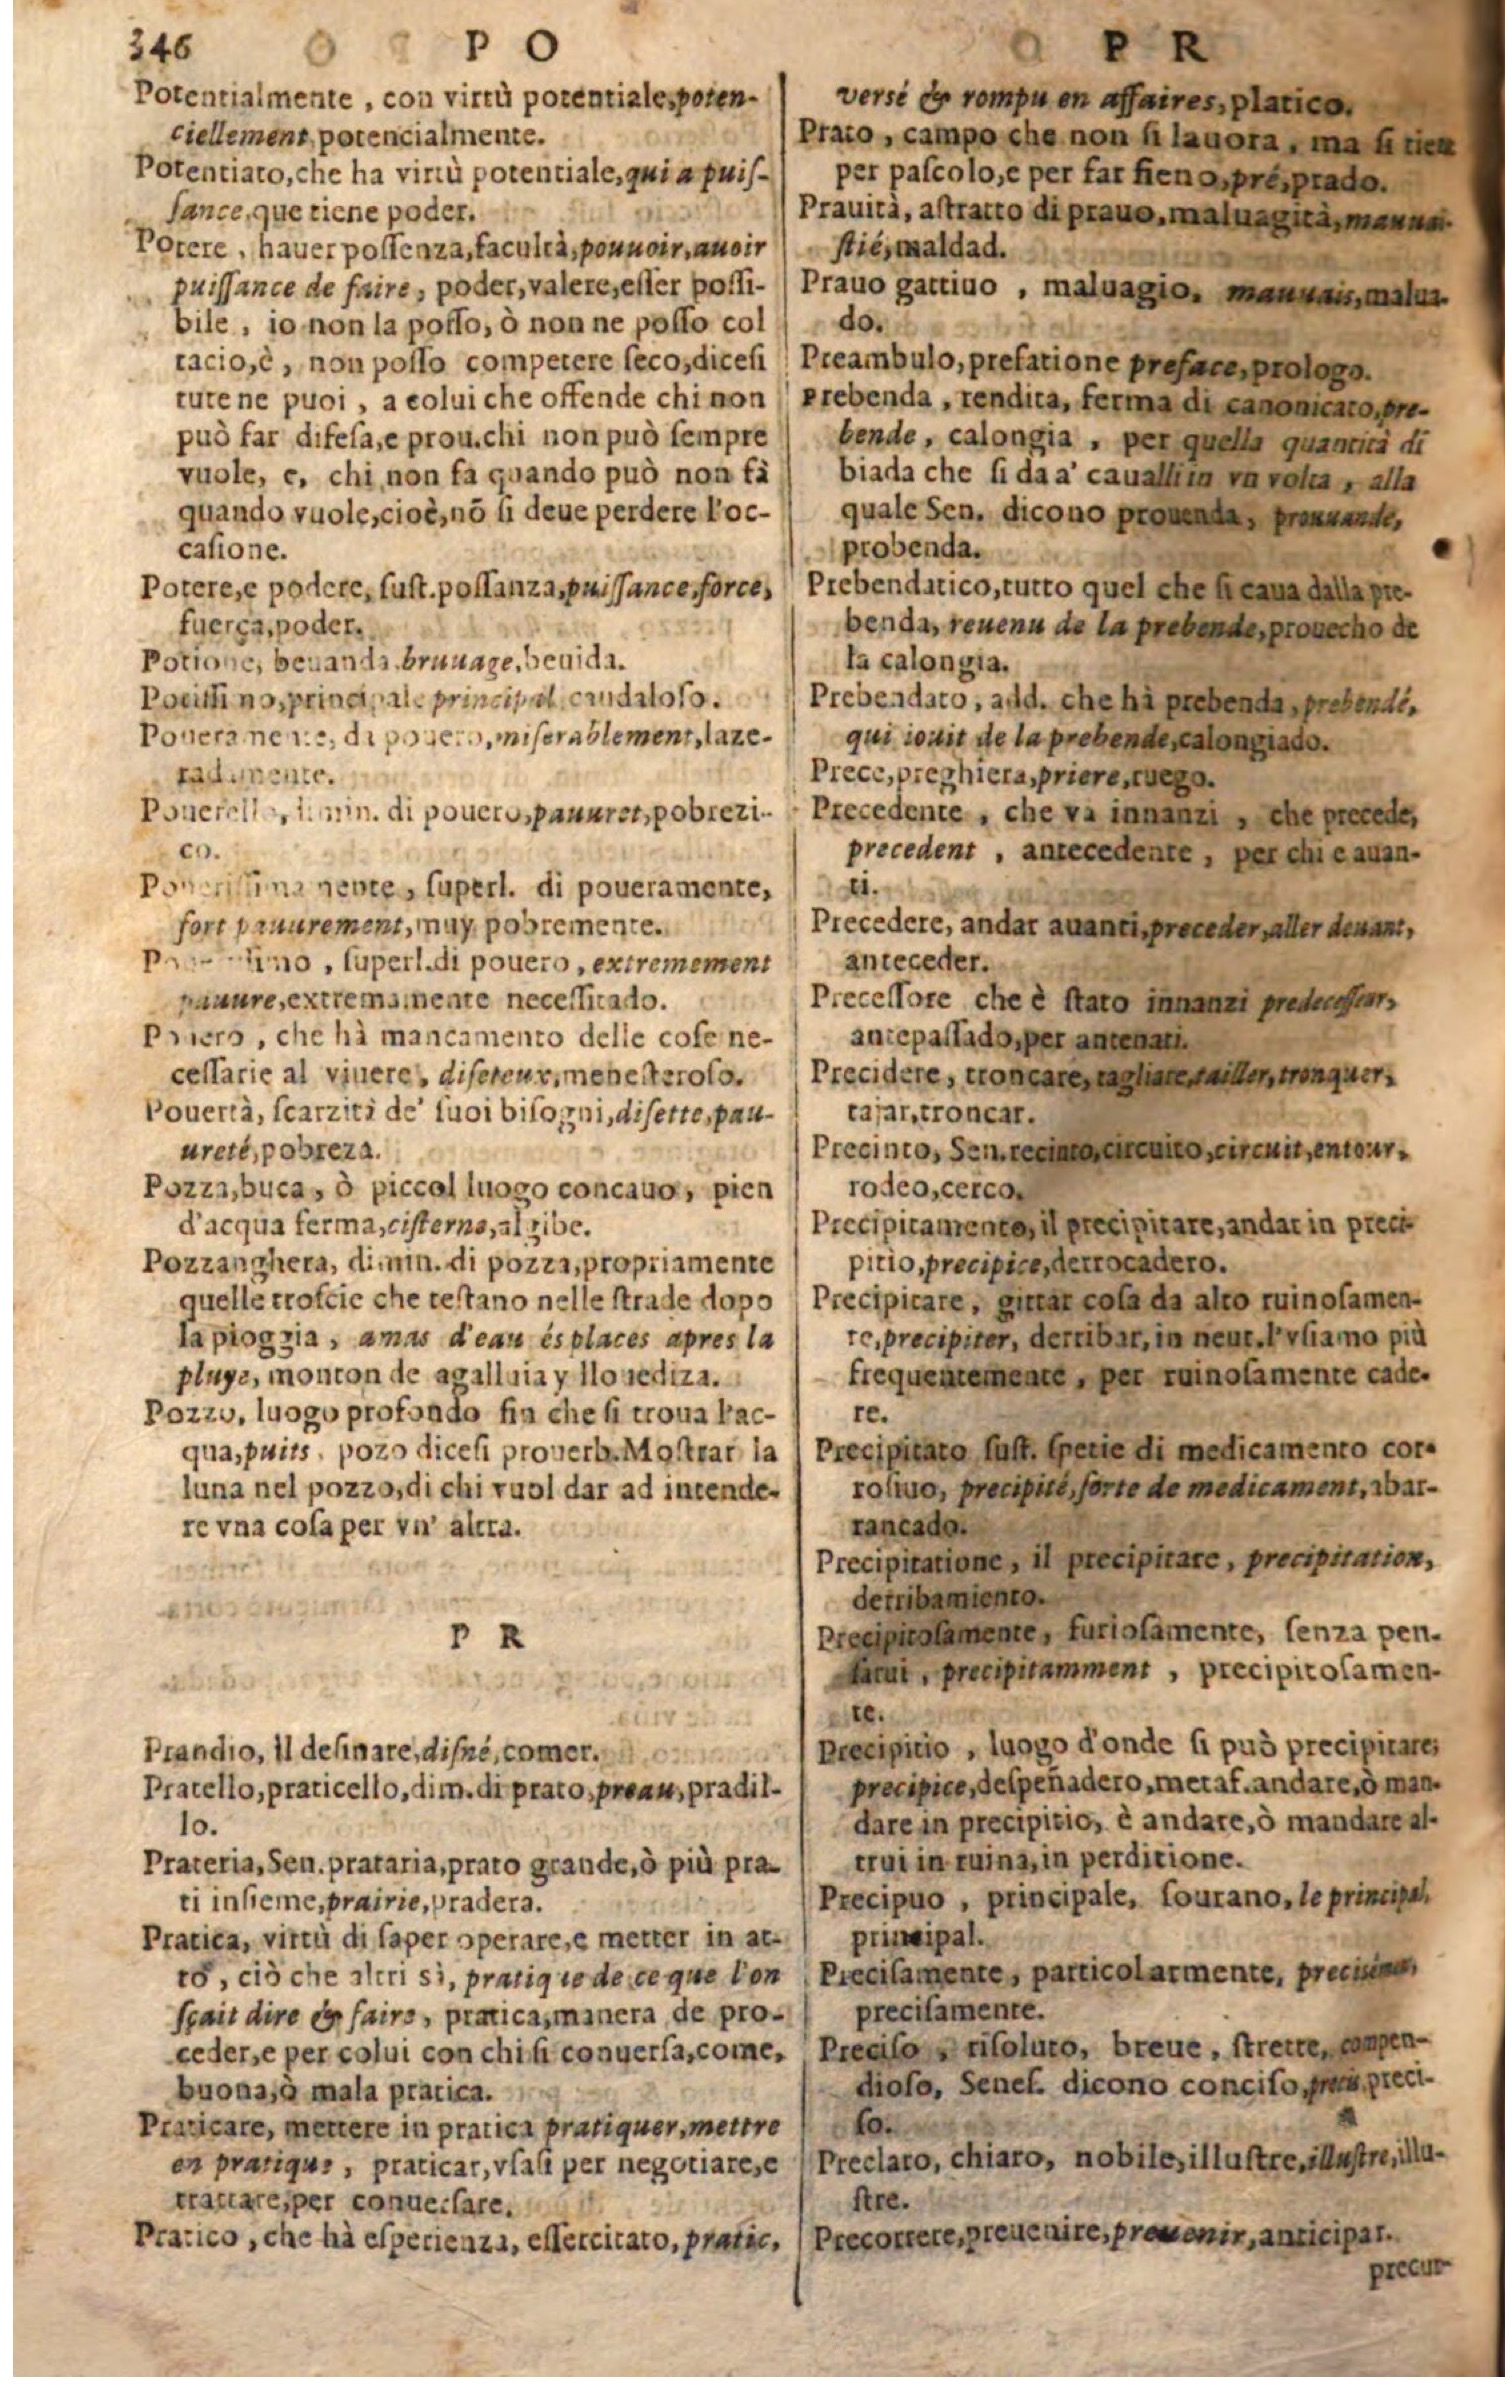 346 P O
P R
Potentialmente , con virtù potentiale, poten-
ciellement, potencialmente.
Potentiato, che ha virtù potentiale, qui a puiſ-
ſance, que tiene poder.
Potere , hauer poſſenza, facultà, pouuoir, auoir
puiſſance de faire , poder, valere, eſſer poſſi-
bile , io non la poſſo, ò non ne poſſo col
tacio, è , non poſſo competere ſeco, diceſi
tu te ne puoi , a colui che offende chi non
può far difeſa, e prou. chi non può ſempre
vuole, e, chi non fa quando può non fà
quando vuole, cioè, nõ ſi deue perdere l'oc-
caſione.
Potere, e podere, ſuſt. poſſanza, puiſſance, force,
fuerça, poder.
Potione, beuanda, bruuage, beuida.
Potiſſimo, principale principal caudaloſo.
Poueramente, da pouero, miſerablement, laze-
radamente.
Pouerello, dimin. di pouero, pauuret, pobrezi-
co.
Poueriſſimamente , ſuperl. di poueramente,
fort pauurement, muy pobremente.
Poueriſſimo , ſuperl. di pouero , extremement
pauure, extremamente neceſſitado.
Pouero , che hà mancamento delle coſe ne-
ceſſarie al viuere , diſeteux, meneſteroſo.
Pouertà, ſcarzità de' ſuoi biſogni, diſette, pau-
ureté, pobreza.
Pozza, buca , ò piccol luogo concauo , pien
d'acqua ferma, ciſterne, algibe.
Pozzanghera, dimin. di pozza, propriamente
quelle troſcie che reſtano nelle ſtrade dopo
la pioggia , amas d'eau és places apres la
pluye, monton de agalluia y llouediza.
Pozzo, luogo profondo fin che ſi troua l'ac-
qua, puits, pozo diceſi prouerb. Moſtrar la
luna nel pozzo, di chi vuol dar ad intende-
re vna coſa per vn' altra.
P R
Prandio, il deſinare, diſné, comer.
Pratello, praticello, dim. di prato, preau, pradil-
lo.
Prateria, Sen. prataria, prato grande, ò più pra-
ti inſieme, prairie, pradera.
Pratica, virtù di ſaper operare, e metter in at-
to , ciò che altri sì, pratique de ce que l'on
ſçait dire & faire , pratica, manera de pro-
ceder, e per colui con chi ſi conuerſa, come,
buona, ò mala pratica.
Praticare, mettere in pratica pratiquer, mettre
en pratique , praticar, vſaſi per negotiare, e
trattare, per conuerſare.
Pratico , che hà eſperienza, eſſercitato, pratic,
versé & rompu en affaires, platico.
Prato , campo che non ſi lauora , ma ſi tien
per paſcolo, e per far fieno, pré, prado.
Prauità, aſtratto di prauo, maluagità, mauuai-
ſtié, maldad.
Prauo gattiuo , maluagio, mauuais, malua-
do.
Preambulo, prefatione preface, prologo.
Prebenda , rendita, ferma di canonicato, pre-
bende , calongia , per quella quantità di
biada che ſi da a' caualli in vn volta , alla
quale Sen. dicono prouenda, prouuande,
probenda.
Prebendatico, tutto quel che ſi caua dalla pre-
benda, reuenu de la prebende, prouecho de
la calongia.
Prebendato , add. che hà prebenda , prebendé,
qui iouit de la prebende, calongiado.
Prece, preghiera, priere, ruego.
Precedente , che va innanzi , che precede,
precedent , antecedente , per chi e auan-
ti.
Precedere, andar auanti, preceder, aller deuant,
anteceder.
Preceſſore che è ſtato innanzi predeceſſeur,
antepaſſado, per antenati.
Precidere , troncare, tagliare, tailler, tronquer,
tajar, troncar.
Precinto, Sen. recinto, circuito, circuit, entour,
rodeo, cerco.
Precipitamento, il precipitare, andar in preci-
pitio, precipice, derrocadero.
Precipitare , gittar coſa da alto ruinoſamen-
te, precipiter, derribar, in neut. l'vſiamo più
frequentemente , per ruinoſamente cade-
re.
Precipitato ſuſt. ſpetie di medicamento cor-
roſiuo, precipité, ſorte de medicament, abar-
rancado.
Precipitatione , il precipitare , precipitation,
derribamiento.
Precipitoſamente , furioſamente, ſenza pen-
ſarui , precipitamment , precipitoſamen-
te.
Precipitio , luogo d'onde ſi può precipitare,
precipice, deſpeñadero, metaf. andare, ò man-
dare in precipitio, è andare, ò mandare al-
trui in ruina, in perditione.
Precipuo , principale, ſourano, le principal,
principal.
Preciſamente , particolarmente,
preciſamente.
Preciſo , riſoluto, breue , ſtrette, compen-
dioſo, Seneſ. dicono conciſo, preci-
ſo.
Preclaro, chiaro, nobile, illuſtre, illuſtre, illu-
ſtre.
Precorrere, preuenire, preuenir, anticipar.
precur-